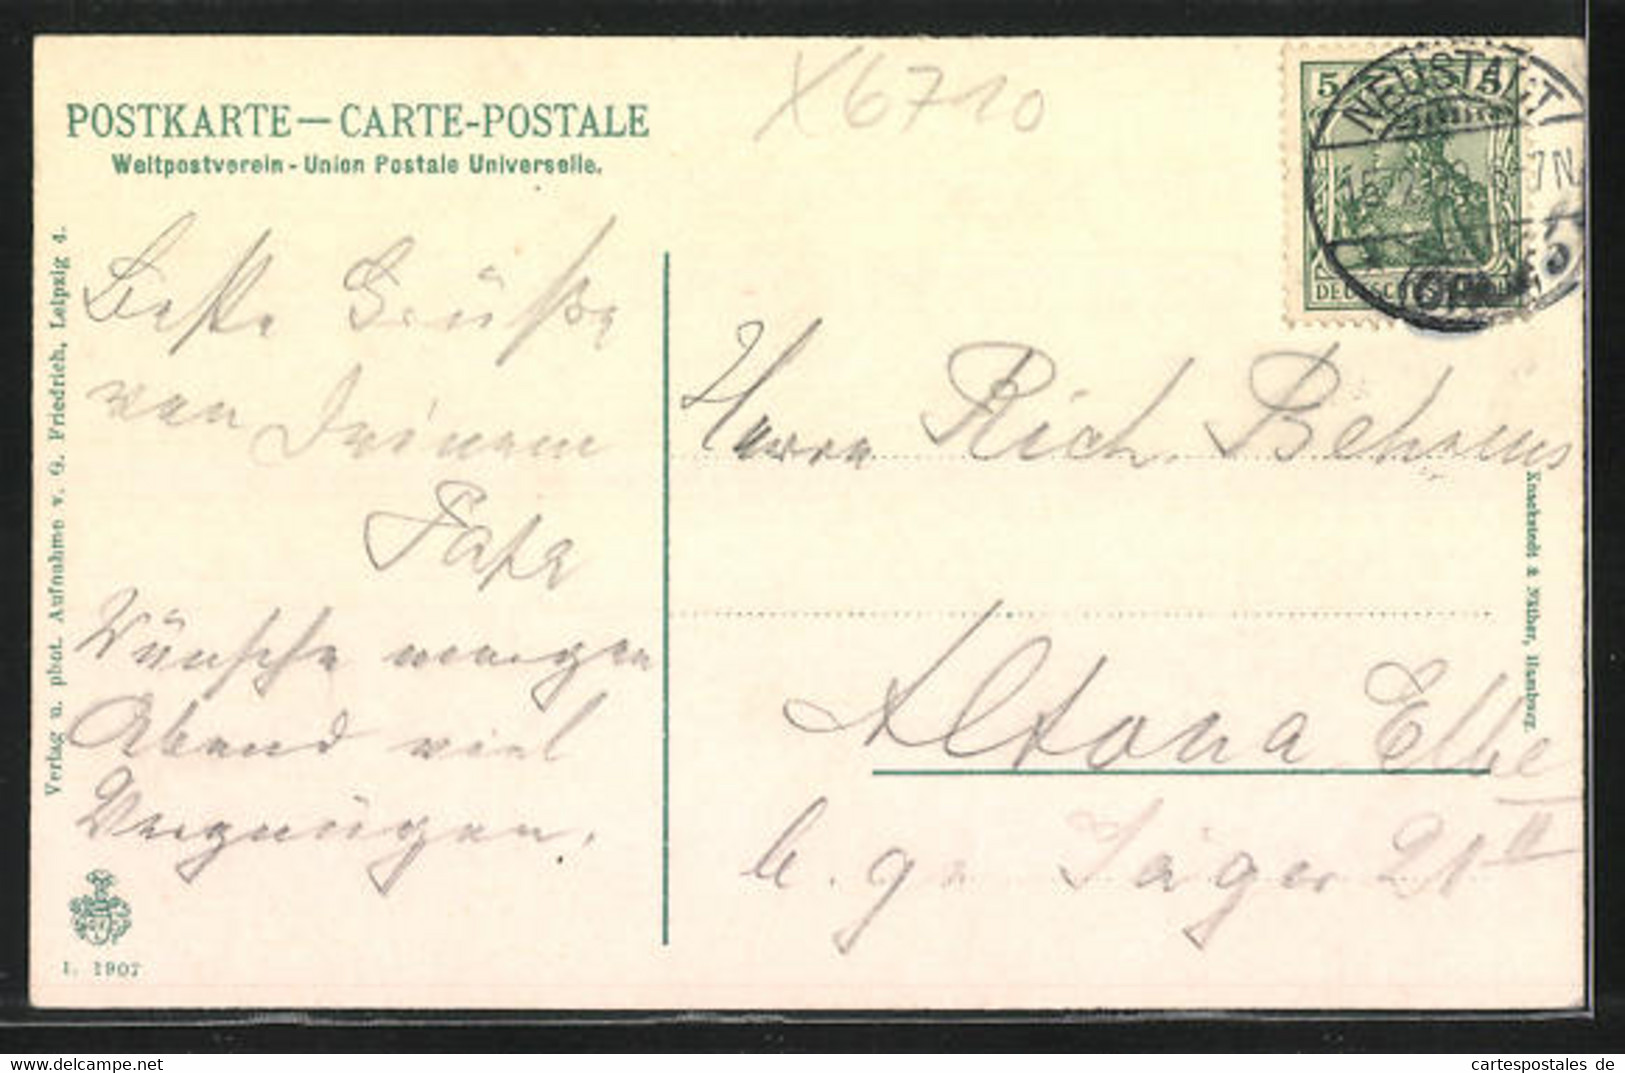 POSTKARTE — CARTE-POSTALE
Weltpostverein - Union Postale Universelle.
X6710
5 5
DEUTSCHES
NEUSTADT
7N
Beste Grüße
von Deinem
Wünsche morgen
Abend viel
Vergnügen.
Herrn Rich. Behrens
Altona Elbe
b. gr. Jäger 21 II
Verlag u. phot. Aufnahme v. G. Friedrich, Leipzig 4.
Knackstedt & Näther, Hamburg.
I. 1907
www.delcampe.net
cartespostales de